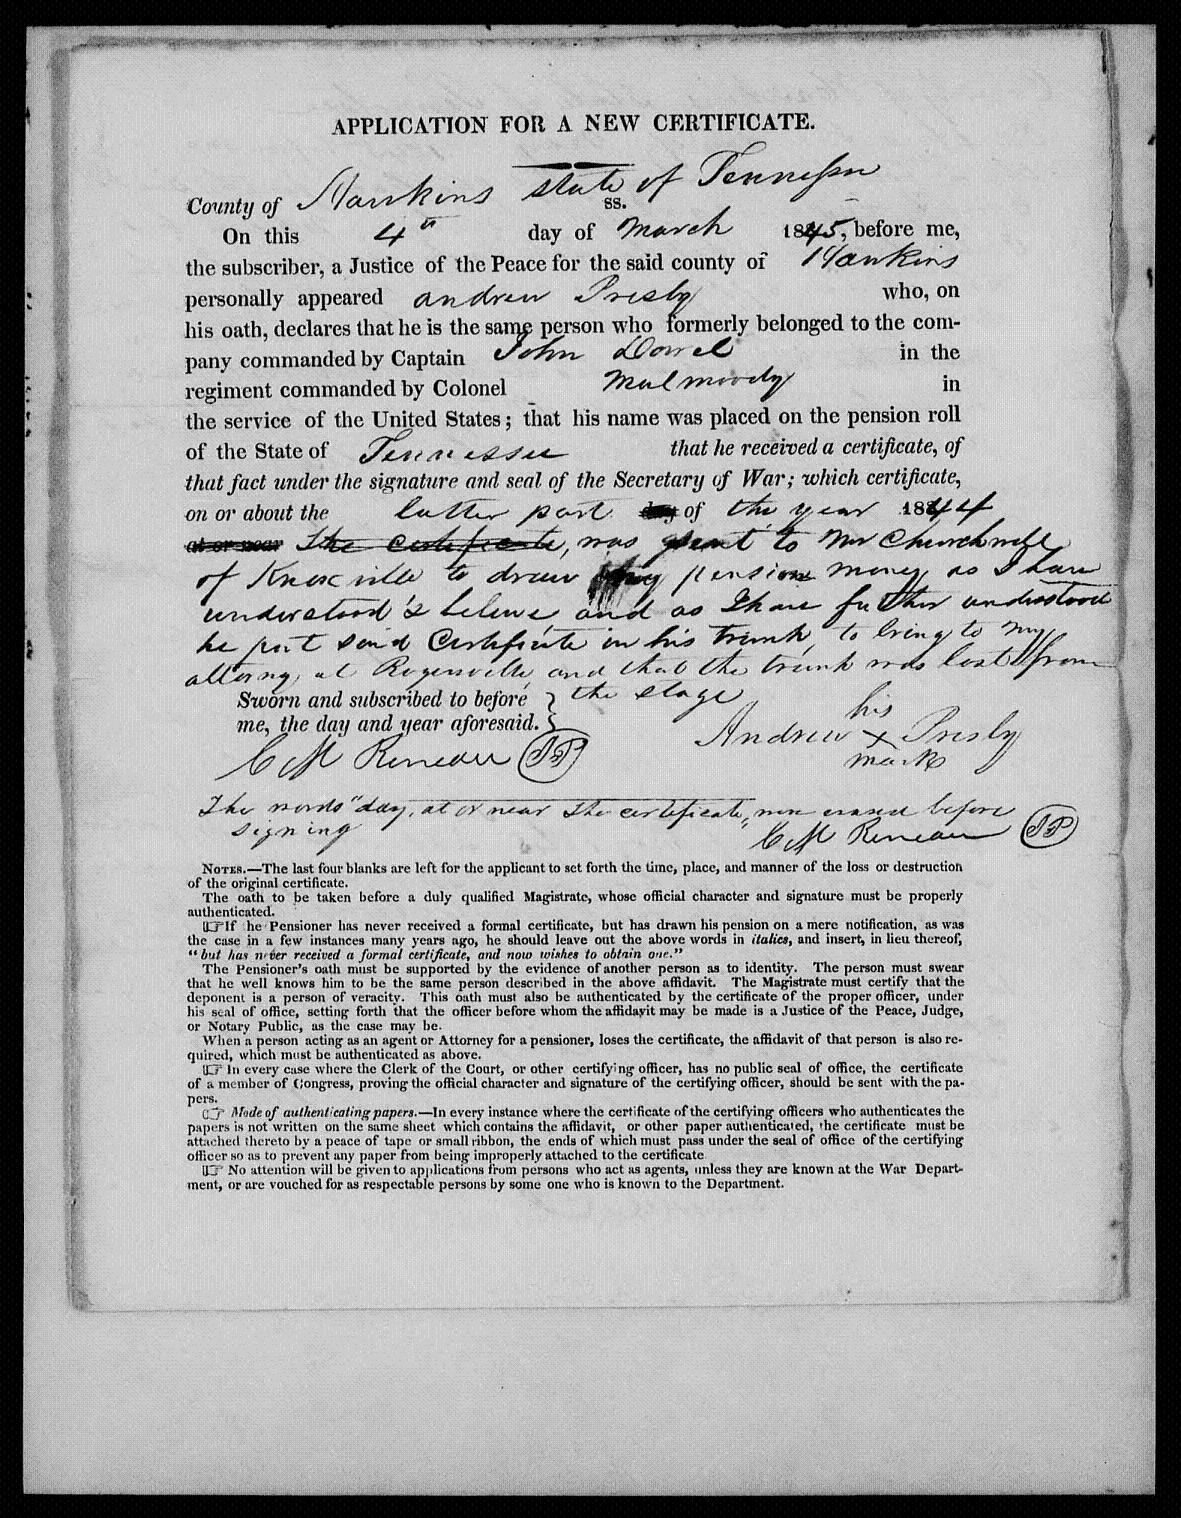 APPLICATION FOR A NEW CERTIFICATE.
County of Hawkins state of Tennessee
ss.
On this 4th day of March 1845, before me,
the subscriber, a Justice of the Peace for the said county of Hawkins
personally appeared andrew Presby who, on
his oath, declares that he is the same person who formerly belonged to the com-
pany commanded by Captain John Dowel in the
regiment commanded by Colonel Malmoody in
the service of the United States; that his name was placed on the pension roll
of the State of Tennessee that he received a certificate, of
that fact under the signature and seal of the Secretary of War; which certificate,
on or about the latter part day of the year 1844
at or near The certificate, was sent to Mr Churchwell
of Knoxville to draw my pension money as I have
understood & believe, and as I have further understood
he put said Certificate in his trunk, to bring to my
attorny at Rogersville, and that the trunk was lost from
the stage
Sworn and subscribed to before
me, the day and year aforesaid.
his
Andrew x Presby
mark
C M Reneau JP
The words "day, at or near The certificate," were erased before
signing
C M Reneau JP
NOTES.—The last four blanks are left for the applicant to set forth the time, place, and manner of the loss or destruction
of the original certificate.
The oath to be taken before a duly qualified Magistrate, whose official character and signature must be properly
authenticated.
☞If he Pensioner has never received a formal certificate, but has drawn his pension on a mere notification, as was
the case in a few instances many years ago, he should leave out the above words in italics, and insert, in lieu thereof,
"but has never received a formal certificate, and now wishes to obtain one."
The Pensioner's oath must be supported by the evidence of another person as to identity. The person must swear
that he well knows him to be the same person described in the above affidavit. The Magistrate must certify that the
deponent is a person of veracity. This oath must also be authenticated by the certificate of the proper officer, under
his seal of office, setting forth that the officer before whom the affidavit may be made is a Justice of the Peace, Judge,
or Notary Public, as the case may be.
When a person acting as an agent or Attorney for a pensioner, loses the certificate, the affidavit of that person is also re-
quired, which must be authenticated as above.
☞ In every case where the Clerk of the Court, or other certifying officer, has no public seal of office, the certificate
of a member of Congress, proving the official character and signature of the certifying officer, should be sent with the pa-
pers.
☞ Mode of authenticating papers.—In every instance where the certificate of the certifying officers who authenticates the
papers is not written on the same sheet which contains the affidavit, or other paper authenticated, the certificate must be
attached thereto by a peace of tape or small ribbon, the ends of which must pass under the seal of office of the certifying
officer so as to prevent any paper from being improperly attached to the certificate
☞ No attention will be given to applications from persons who act as agents, unless they are known at the War Depart-
ment, or are vouched for as respectable persons by some one who is known to the Department.